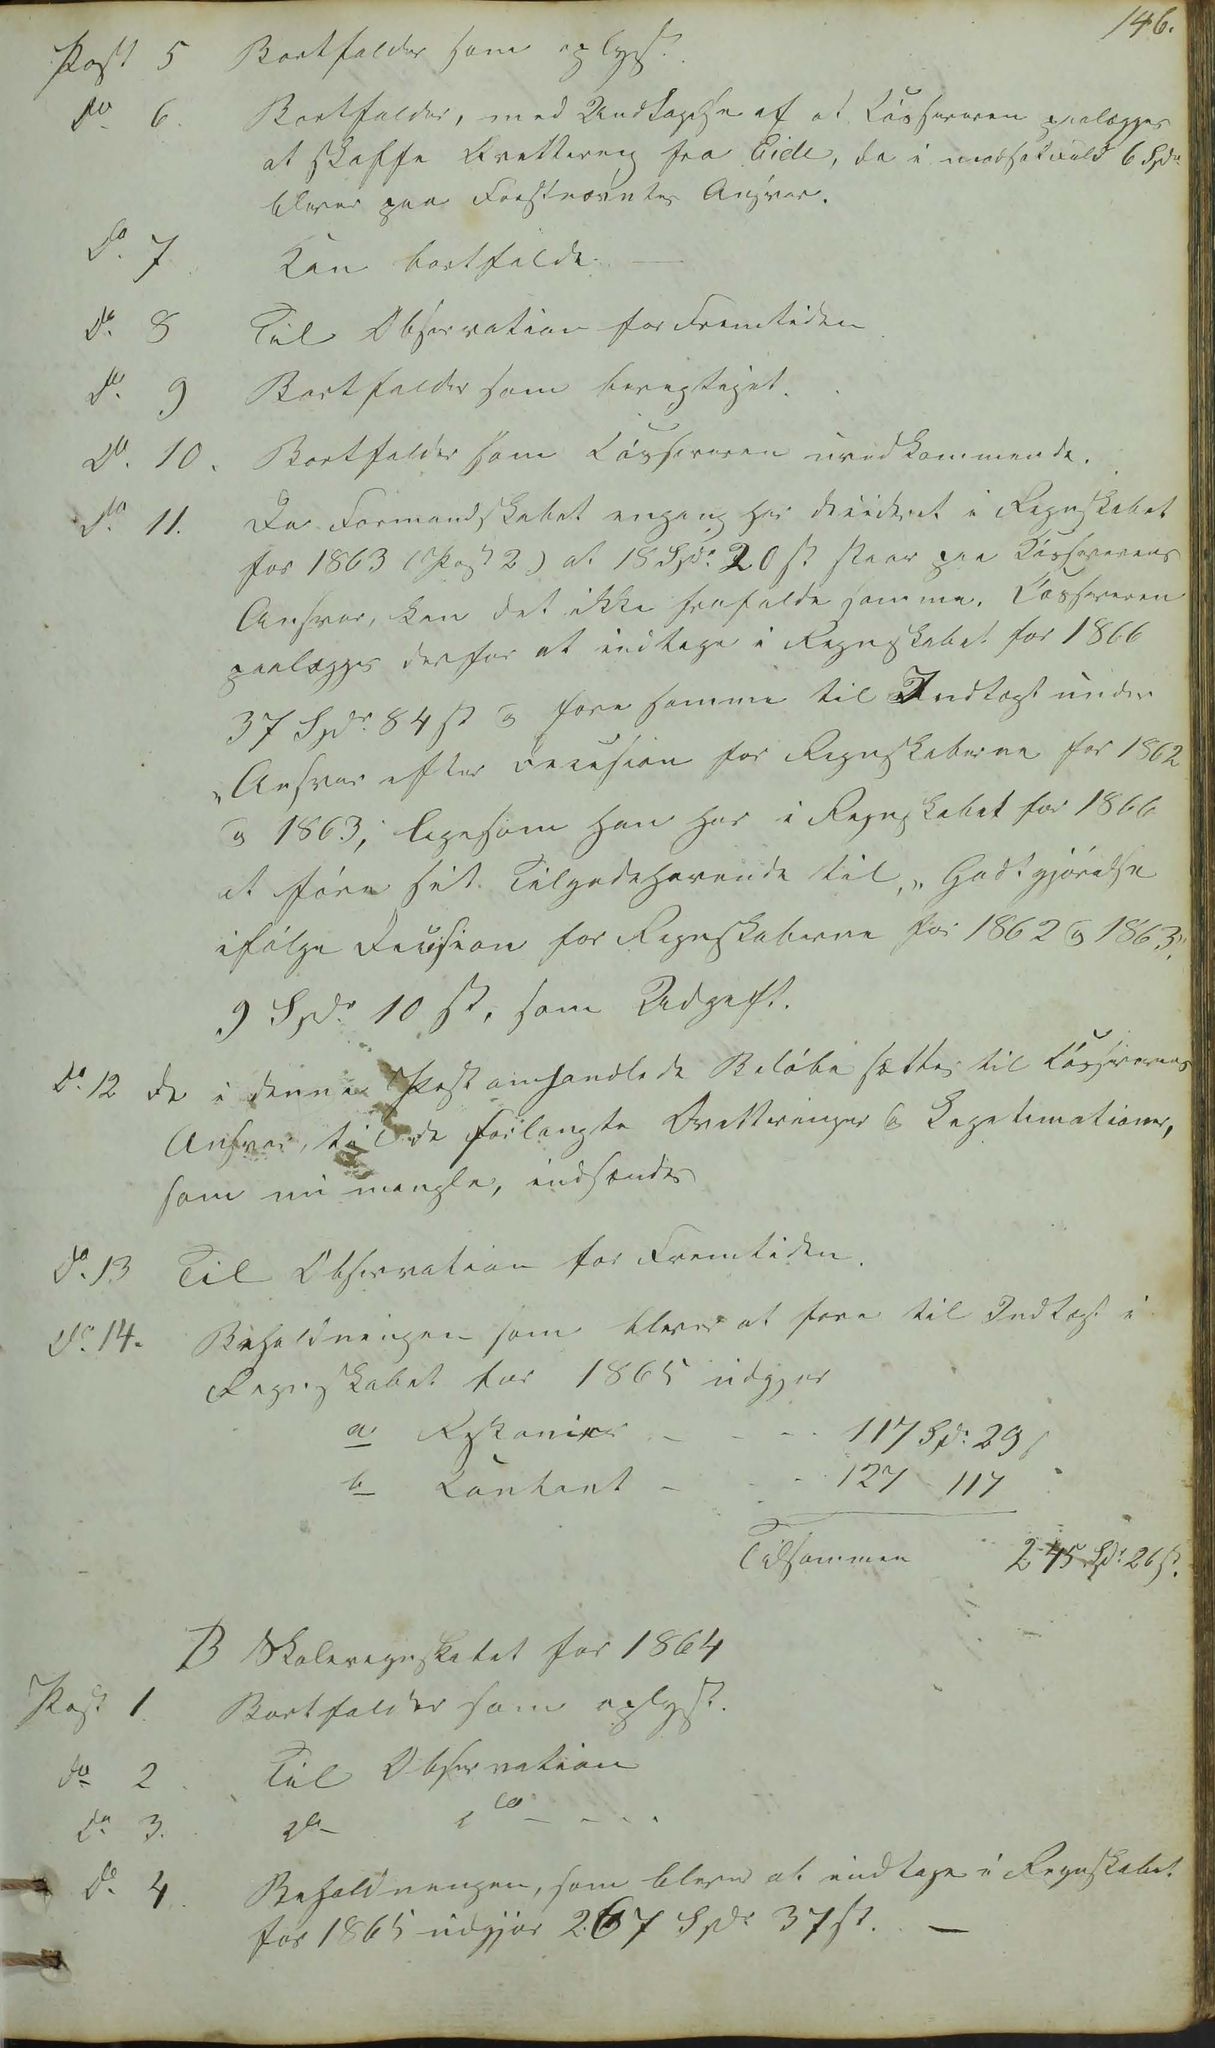 146.
Post 5 Bortfalder som oplyst.
Do 6. Bortfalder, med Undtagelse af at Casséreren paalægges
at skaffe Qvittering fra Eide, da i modsat Fald 6 Spdr
bliver paa Førstnævntes Ansvar.
Do. 7 Kan bortfalde. —
Do. 8 Til Observation for Fremtiden
Do. 9 Bortfalder som berigtiget.
Do. 10. Bortfalder som Casséreren uvedkommende.
Do. 11. Da Formandskabet engang har decideret i Regnskabet
for 1863 (Post 2) at 18 Spdr. 20 s staar paa Cassererens
Ansvar, kan det ikke frafalde samme. Cassereren
paalægges derfor at indtage i Regnskabet for 1866
37 Spdr. 84 s og føre samme til Indtægt under
„Ansvar efter Decision for Regnskaberne for 1862
og 1863; ligesom han har i Regnskabet for 1866
at føre sit Tilgodehavende til, „Godtgjørelse
ifølge Decision for Regnskaberne for 1862 og 1863,"
9 Spdr 10 s, som Udgift.
Do. 12 De i denne Post omhandlede Beløbe sættes til Cassererens
Ansvar, til de forlangte Qvitteringer og Legitimationer,
som nu mangle, indsendes
Do. 13 Til Observation for Fremtiden.
Do. 14. Beholdningen som bliver at føre til Indtægt i
Regnskabet for 1865 udgjør
a Restancer - - - 117 Spdr. 29 s
b Contant - - - 127 - 117
Tilsammen 245 Spdr. 26 s.
B Skoleregnskabet for 1864
Post 1. Bortfalder som oplyst.
do 2. Til Observation
Do. 3. do - do - - - -
Do. 4. Beholdningen, som bliver at indtage i Regnskabet
for 1865 udgjør 267 Spdr 37 s. —